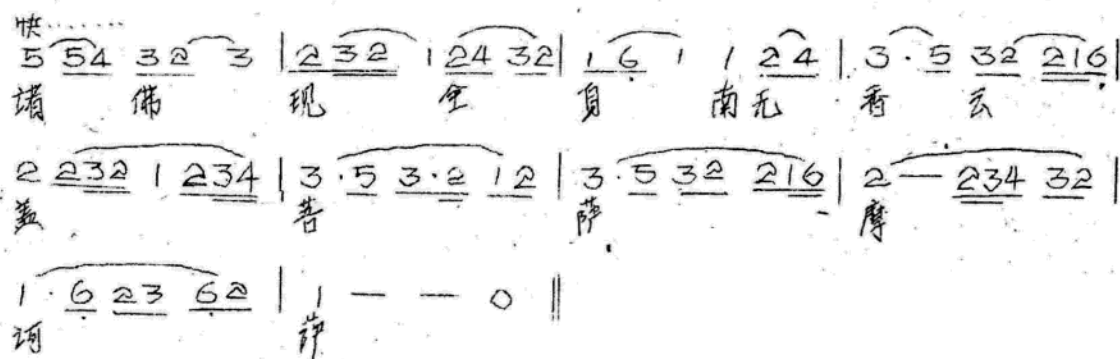 快……
5 54 32 3 | 2 32 1 24 32 | 1 6 1 1 24 | 3·5 32 216 |
诸 佛 现 全 身 南无 香 云
2 232 1 234 | 3·5 3·2 12 | 3·5 32 216 | 2 — 234 32 |
盖 菩 萨 摩
1·6 23 62 | 1 — — 0 ‖
诃 萨